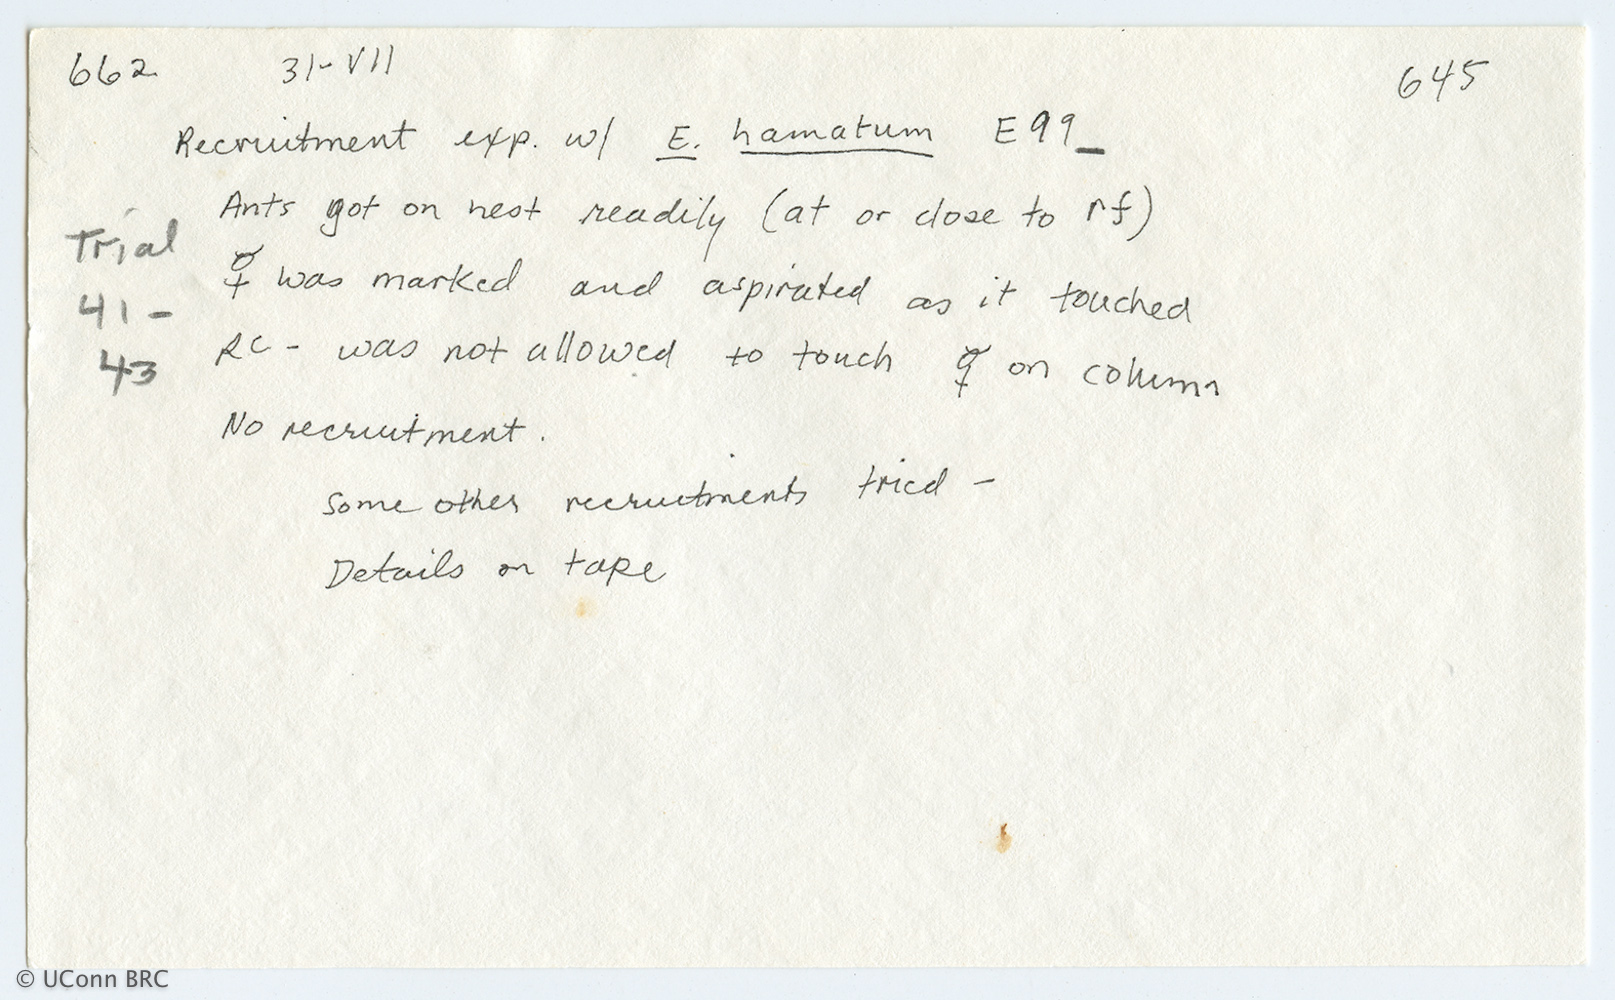 662 31-VII 645
Recruitment exp. w/ E. hamatum E99_
Ants got on nest readily (at or close to rf)
Trial
☿ was marked and aspirated as it touched
41-
RC - was not allowed to touch ☿ on column
43
No recruitment.
Some other recruitments tried -
Details on tape
© UConn BRC